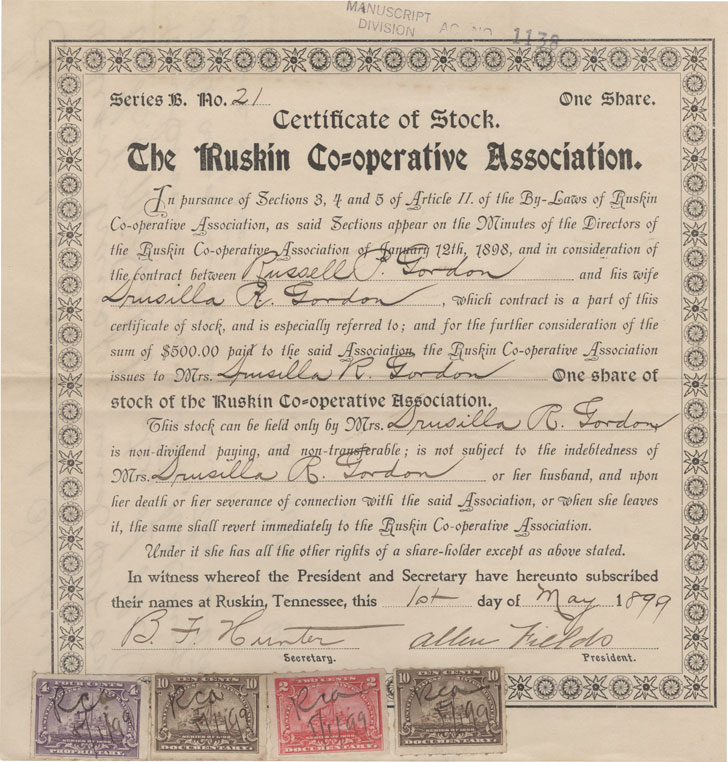 MANUSCRIPT
DIVISION AC. NO. 1138
Series B. No. 21 One Share.
Certificate of Stock.
The Ruskin Co=operative Association.
In pursance of Sections 3, 4 and 5 of Article II. of the By-Laws of Ruskin
Co-operative Association, as said Sections appear on the Minutes of the Directors of
the Ruskin Co-operative Association of January 12th, 1898, and in consideration of
the contract between Russell P. Gordon and his wife
Drusilla R. Gordon, which contract is a part of this
certificate of stock, and is especially referred to; and for the further consideration of the
sum of $500.00 paid to the said Association, the Ruskin Co-operative Association
issues to Mrs. Drusilla R. Gordon One share of
stock of the Ruskin Co=operative Association.
This stock can be held only by Mrs. Drusilla R. Gordon
is non-dividend paying, and non-transferable; is not subject to the indebtedness of
Mrs. Drusilla R. Gordon or her husband, and upon
her death or her severance of connection with the said Association, or when she leaves
it, the same shall revert immediately to the Ruskin Co-operative Association.
Under it she has all the other rights of a share-holder except as above stated.
In witness whereof the President and Secretary have hereunto subscribed
their names at Ruskin, Tennessee, this 1st day of May 1899
B. F. Hunter Allen Fields
Secretary. President.
FOUR CENTS TEN CENTS TWO CENTS TEN CENTS
4 4 10 10 2 2 10 10
Rca Rca Rca Rca
5/1/99 5/1/99 5/1/99 5/1/99
SERIES OF 1898 SERIES OF 1898 SERIES OF 1898 SERIES OF 1898
PROPRIETARY. DOCUMENTARY. DOCUMENTARY. DOCUMENTARY.